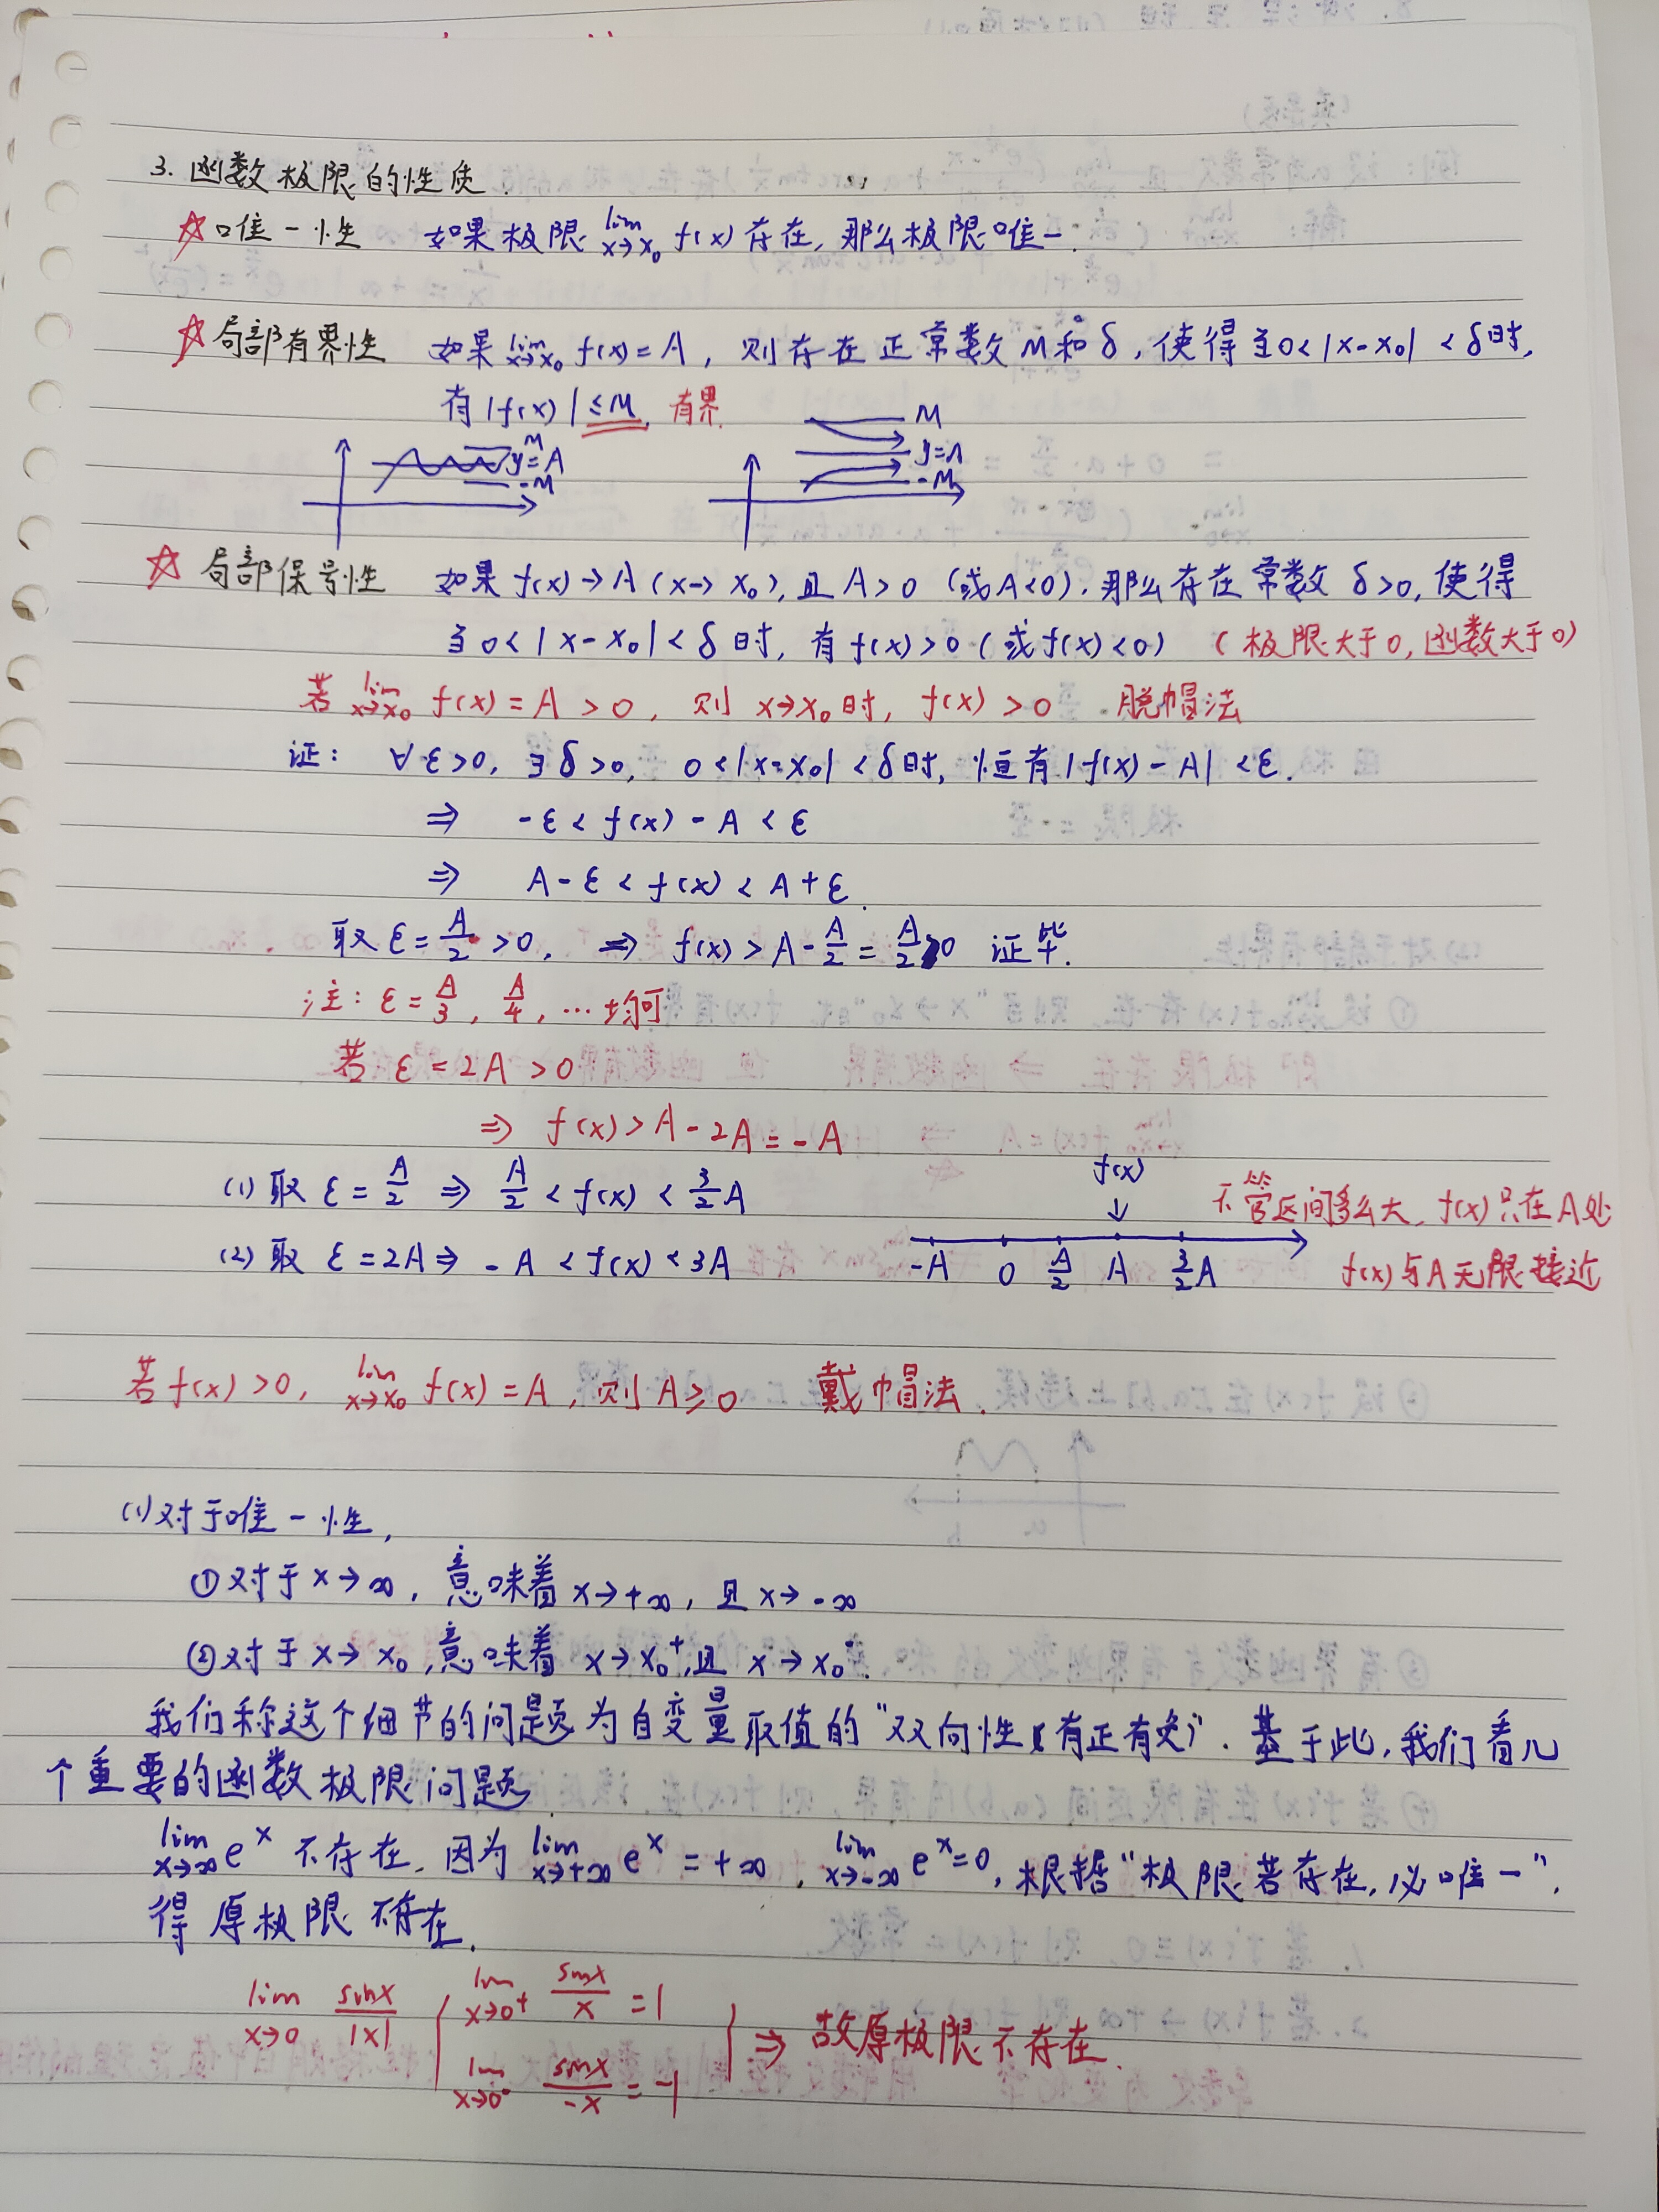 3. 函数极限的性质.
☆唯一性 如果极限 lim x→x₀ f(x) 存在, 那么极限唯一.
☆局部有界性 如果 lim x→x₀ f(x) = A, 则存在正常数M和δ, 使得当0<|x-x₀|<δ时,
有|f(x)|≤M. 有界.
M
y=A
-M
M
y=A
-M
☆ 局部保号性 如果 f(x)→A (x→x₀), 且A>0 (或A<0). 那么存在常数 δ>0, 使得
当0<|x-x₀|<δ时, 有f(x)>0 (或f(x)<0) (极限大于0, 函数大于0)
若 lim x→x₀ f(x) = A > 0, 则 x→x₀时, f(x) > 0. 脱帽法
证: ∀ε>0, ∃δ>0, 0<|x-x₀|<δ时, 恒有|f(x)-A|<ε.
⇒ -ε < f(x) - A < ε
⇒ A-ε < f(x) < A+ε.
取 ε = A/2 > 0, ⇒ f(x) > A - A/2 = A/2 > 0 证毕.
注: ε = A/3, A/4, … 均可
若 ε = 2A > 0
⇒ f(x) > A - 2A = -A
(1) 取 ε = A/2 ⇒ A/2 < f(x) < 3/2 A
f(x)
↓
不管区间多么大, f(x)只在A处
(2) 取 ε = 2A ⇒ -A < f(x) < 3A
-A 0 A/2 A 3/2 A
f(x)与A无限接近
若 f(x) > 0, lim x→x₀ f(x) = A, 则 A ≥ 0 戴帽法.
(1) 对于唯一性,
① 对于 x→∞, 意味着 x→+∞, 且 x→-∞
② 对于 x→x₀, 意味着 x→x₀⁺, 且 x→x₀⁻.
我们称这个细节的问题为自变量取值的“双向性(有正有负)”. 基于此, 我们看几
个重要的函数极限问题.
lim x→∞ eˣ 不存在, 因为 lim x→+∞ eˣ = +∞, lim x→-∞ eˣ = 0, 根据“极限若存在, 必唯一”,
得原极限不存在.
lim x→0 sinx/|x| { lim x→0⁺ sinx/x = 1
lim x→0⁻ sinx/-x = -1 } ⇒ 故原极限不存在.